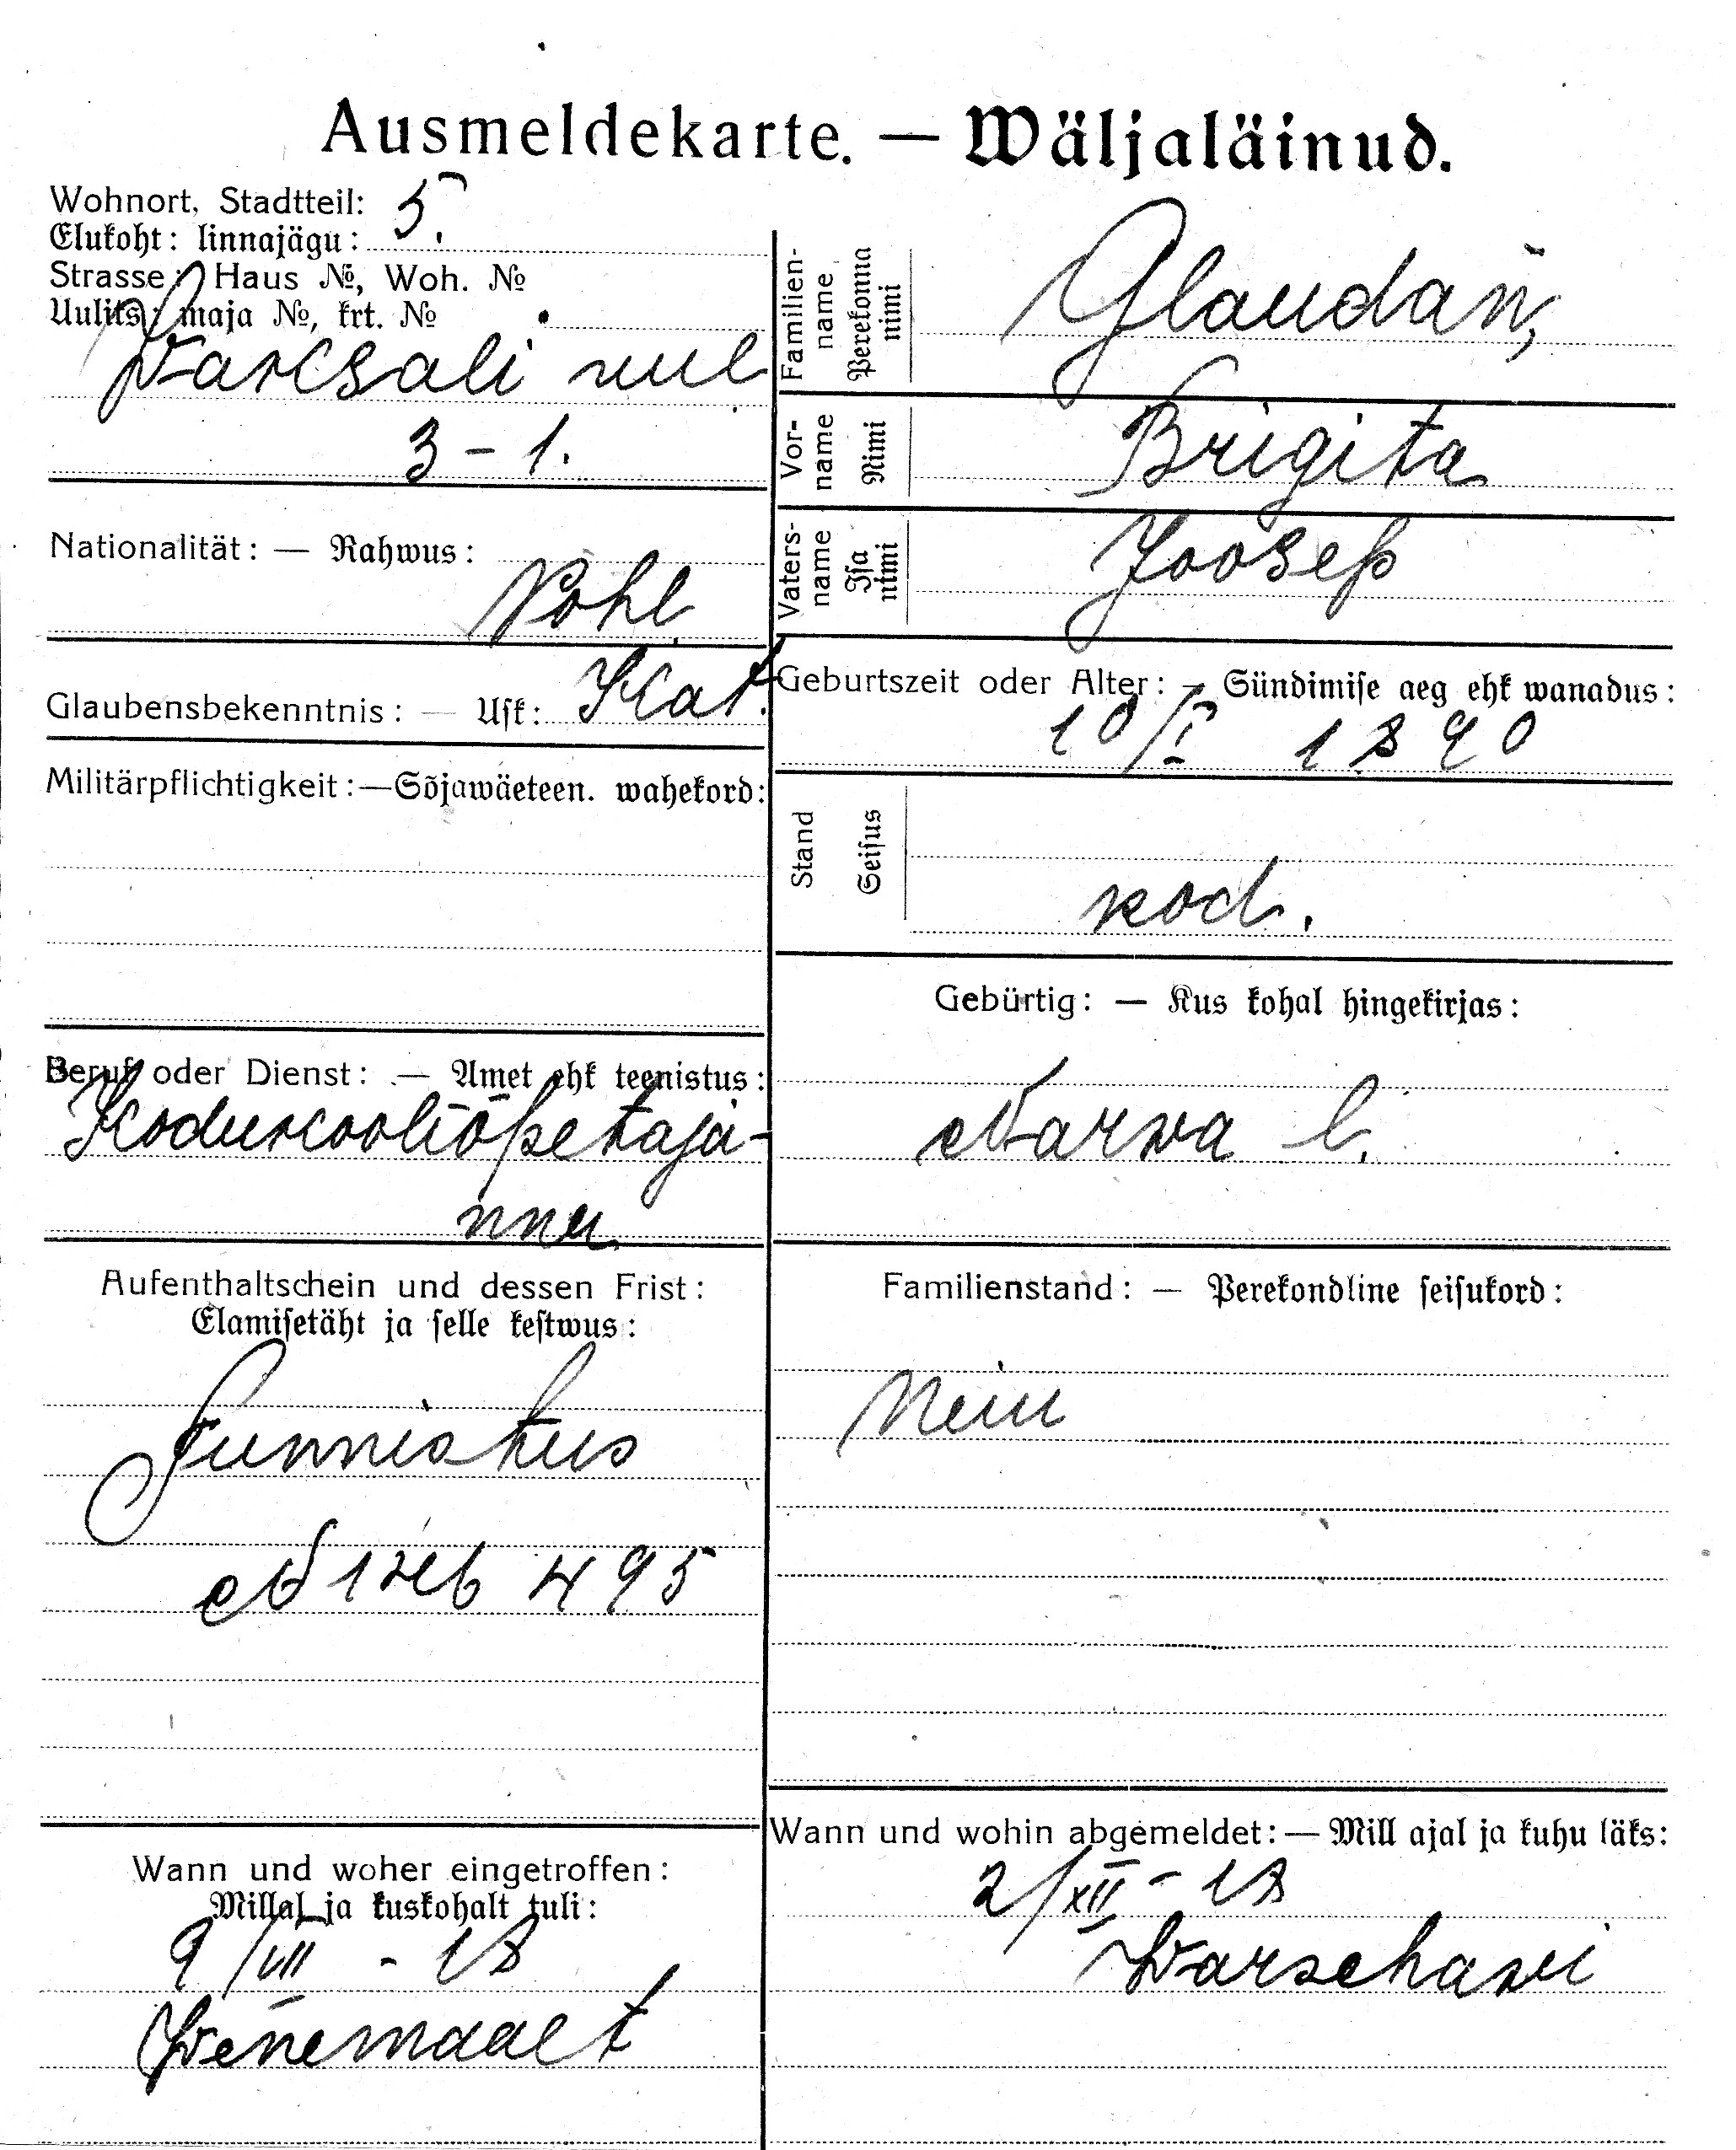 Ausmeldekarte. — Wäljaläinud.
Wohnort, Stadtteil:
Elukoht: linnajägu: 5.
Strasse: Haus №, Woh. №
Uulits: maja №, krt. №
uul
3 - 1.
Nationalität: — Rahwus:
Pohl
Glaubensbekenntnis: — Usk: Kat.
Militärpflichtigkeit: — Sõjawäeteen. wahekord:
Beruf oder Dienst: — Amet ehk teenistus:
Kodukooliõpetaja-
nna
Aufenthaltschein und dessen Frist:
Elamisetäht ja selle kestwus:
Tunnistus
495
Wann und woher eingetroffen:
Millal ja kuskohalt tuli:
9/VII - 18
Wenemaalt
Familien-
name
Perekonna
nimi
Glaudan,
Vor-
name
Nimi
Brigita
Vaters-
name
Isa
nimi
Joosep
Geburtszeit oder Alter: — Sündimise aeg ehk wanadus:
10/I 1890
Stand
Seisus
kod.
Gebürtig: — Kus kohal hingekirjas:
Narwa l.
Familienstand: — Perekondline seisukord:
Nein
Wann und wohin abgemeldet: — Mill ajal ja kuhu läks:
2/XII - 18
Warschawi